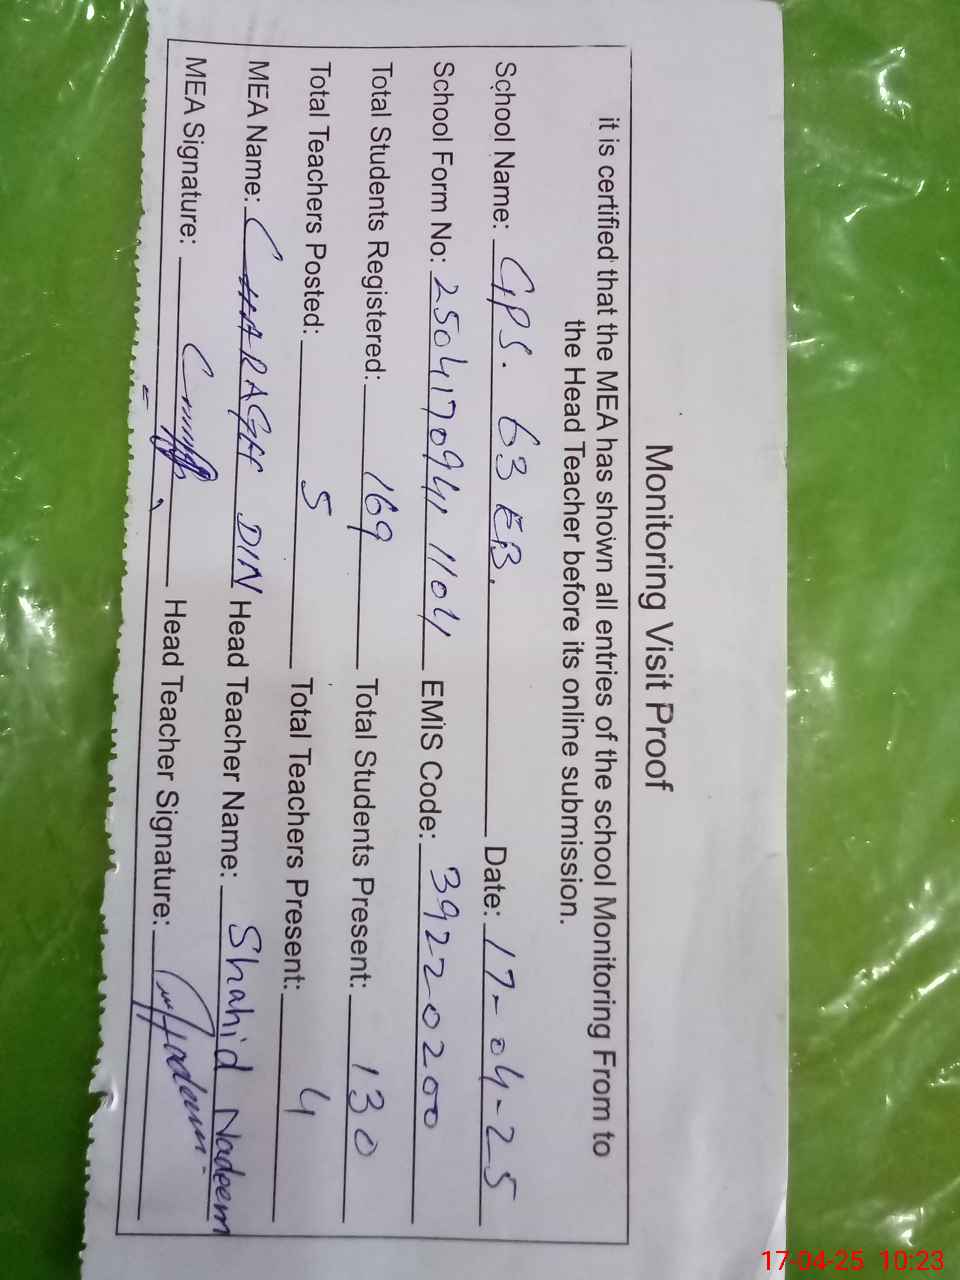 Monitoring Visit Proof
it is certified that the MEA has shown all entries of the school Monitoring From to
the Head Teacher before its online submission.
School Name: GPS. 63 EB. Date: 17-04-25
School Form No: 2504170941 1104 EMiS Code: 39220200
Total Students Registered: 169 Total Students Present: 130
Total Teachers Posted: 5 Total Teachers Present: 4
MEA Name: CHARAGH DIN Head Teacher Name: Shahid Nadeem
MEA Signature: Head Teacher Signature:
17-04-25 10:23